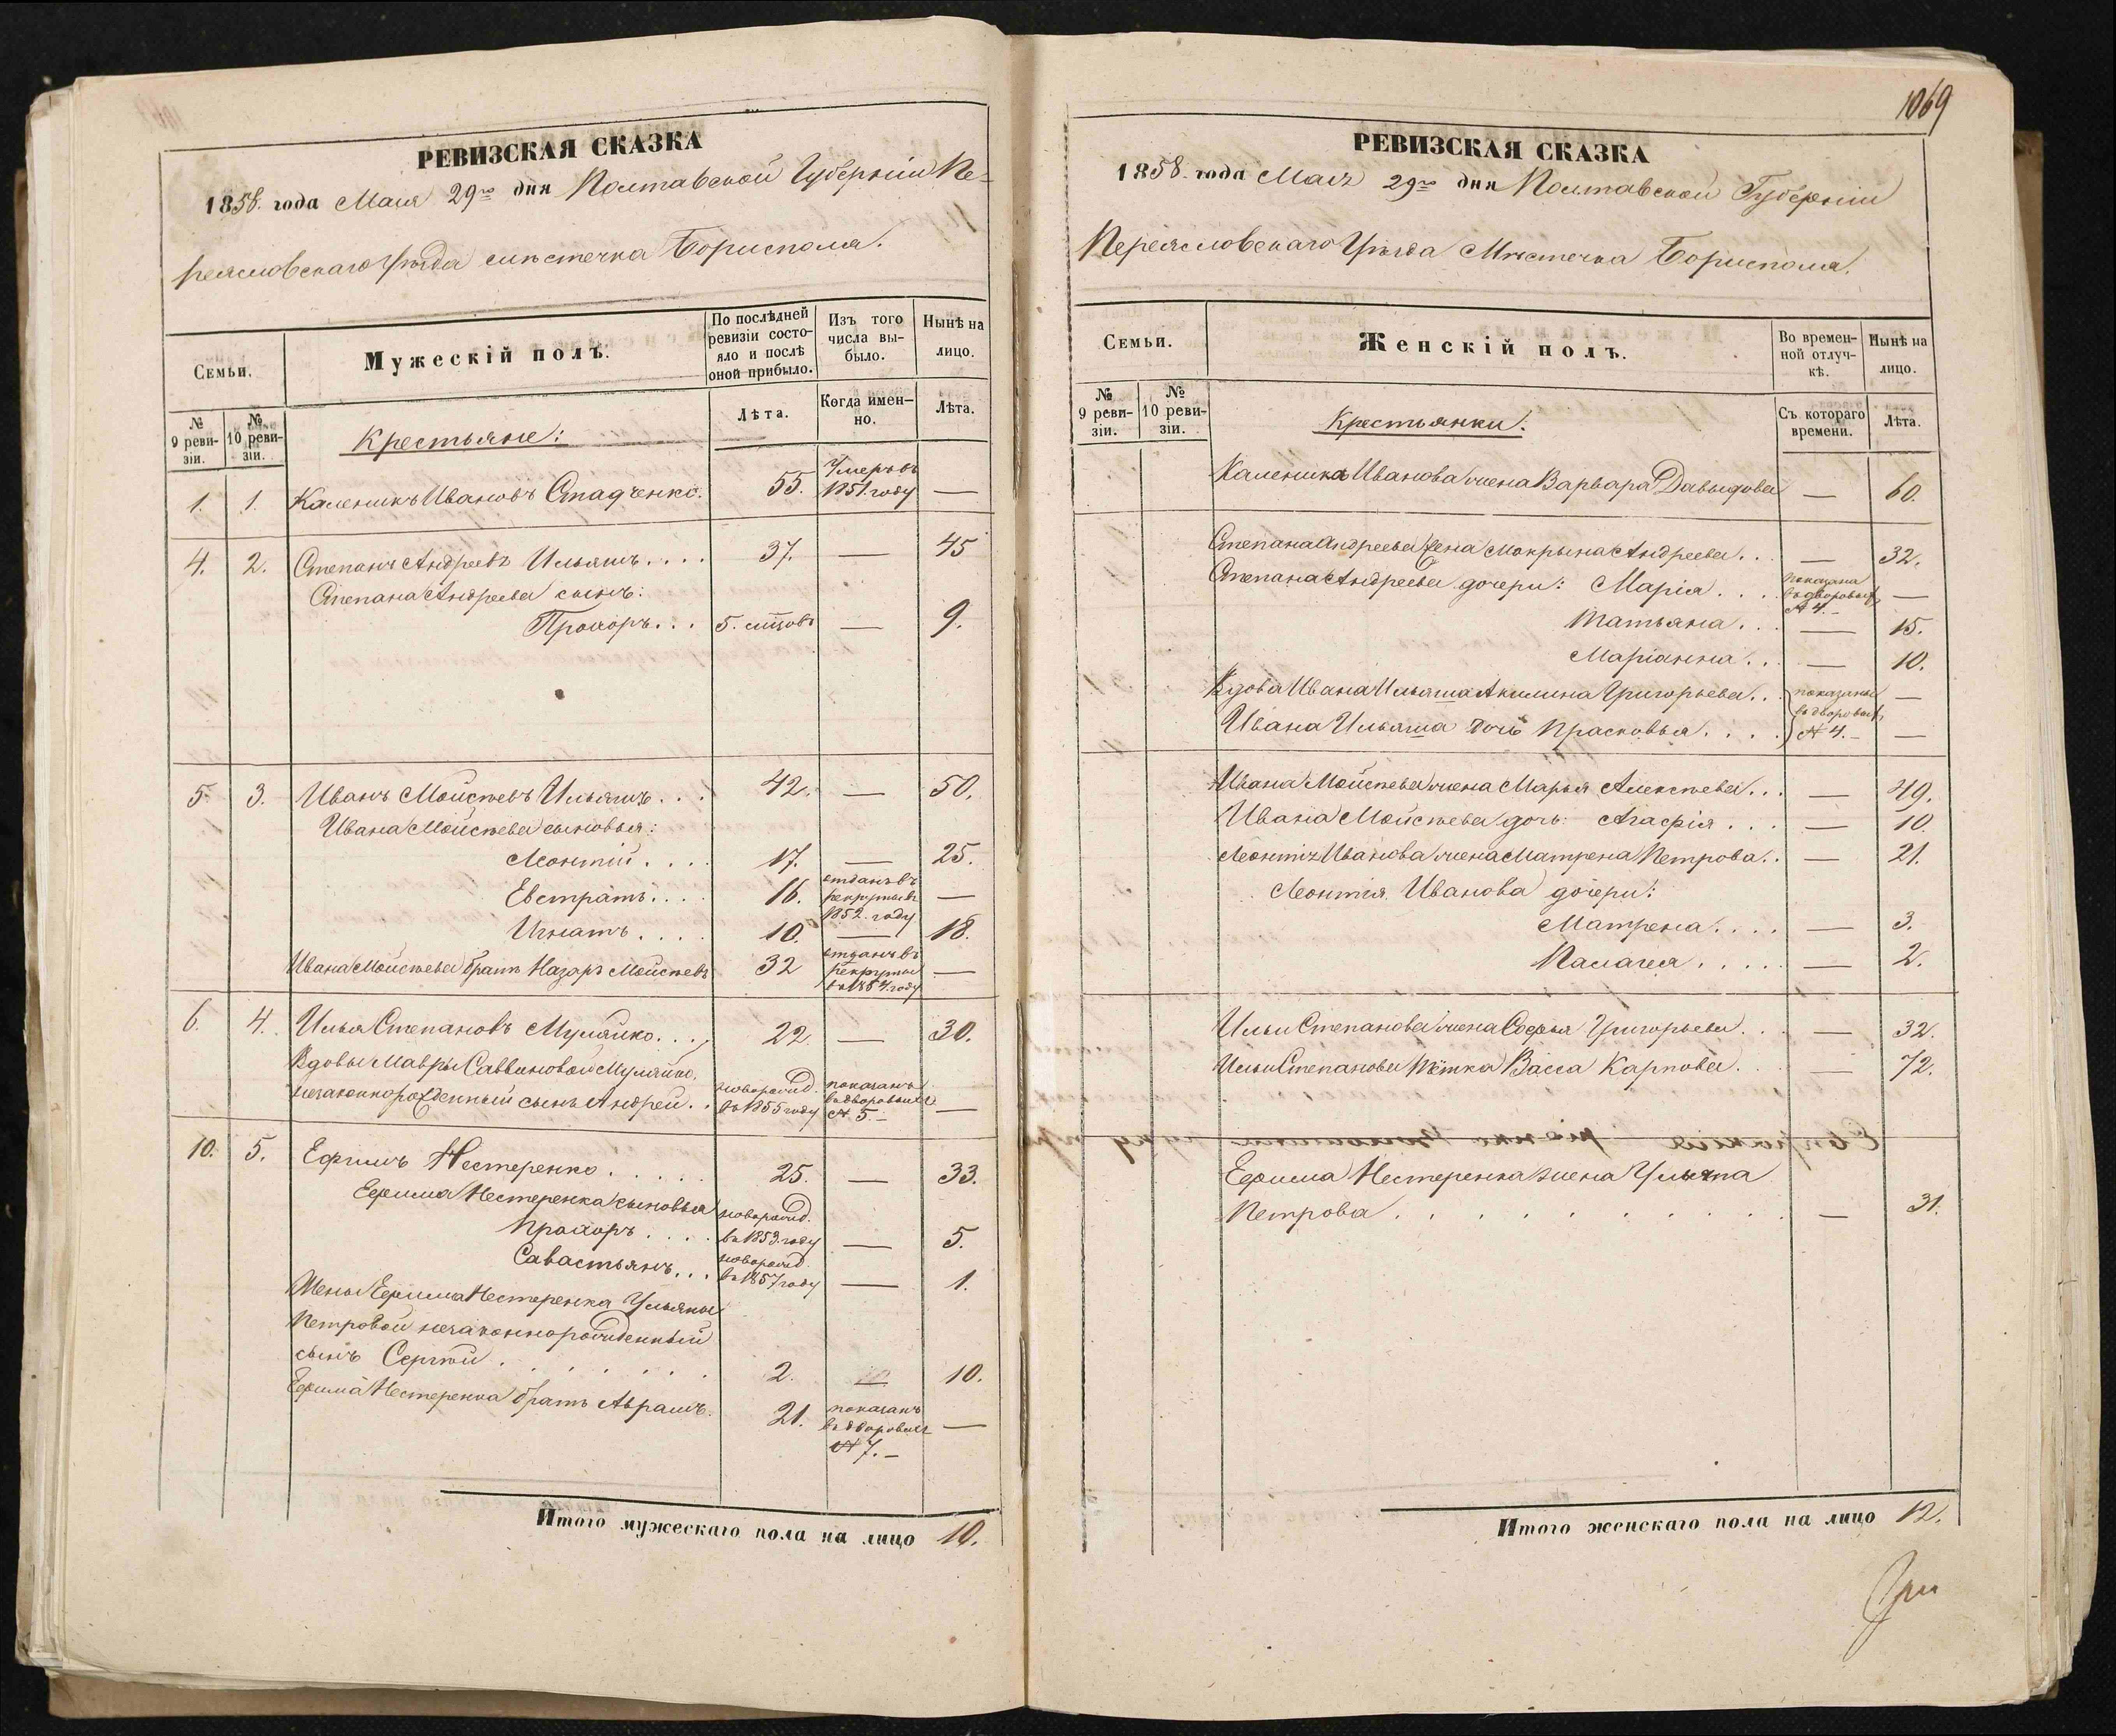 РЕВИЗСКАЯ СКАЗКА
1858. года Мая 29го дня Полтавской Губерніи Пе-
реяславскаго Уѣзда мѣстечка Борисполя.
Семьи.
Мужескій полъ.
По послѣдней ревизіи состо-яло и послѣ оной прибыло.
Изъ того числа вы-было.
Нынѣ на лицо.
№ 9 реви-зіи.
№ 10 реви-зіи.
Крестьяне:
Лѣта.
Когда имен-но.
Лѣта.
1. 1. Каленикъ Ивановъ Стадченко. 55. Умеръ въ 1851. году —
4. 2. Степанъ Андреевъ Ильяшъ.... 37. — 45
Степана Андреева сынъ:
Прохоръ... 5. мцовъ — 9.
5. 3. Иванъ Мойсѣевъ Ильяшъ... 42. — 50.
Ивана Мойсѣева сыновья:
Леонтій.... 17. — 25.
Евстратъ.... 16. отданъ въ рекруты въ 1852. году —
Игнатъ.... 10. — 18.
Ивана Мойсѣева братъ Назаръ Мойсѣевъ 32 отданъ въ рекруты въ 1854. году —
6. 4. Илья Степановъ Муляйко... 22. — 30.
Вдовы Мавры Саввиновой Муляйко.
незаконнорожденный сынъ Андрей.. новорожд. въ 1855 году показанъ въ дворовыхъ № 5. —
10. 5. Ефимъ Нестеренко..... 25. — 33.
Ефима Нестеренка сыновья
Прохоръ.... новорожд. въ 1853. году — 5.
Савастьянъ... новорожд. въ 1857 году — 1.
Жены Ефима Нестеренка Ульяны
Петровой незаконнорожденный
сынъ Сергѣй....... 2. — 10.
Ефима Нестеренка братъ Аврамъ. 21. показанъ въ дворовыхъ № 7. —
Итого мужескаго пола на лицо 10.
1069
РЕВИЗСКАЯ СКАЗКА
1858. года Мая 29го дня Полтавской Губерніи
Переяславскаго Уѣзда Мѣстечка Борисполя.
Семьи.
Женскій полъ.
Во времен-ной отлуч-кѣ.
Нынѣ на лицо.
№ 9 реви-зіи.
№ 10 реви-зіи.
Крестьянки:
Съ котораго времени.
Лѣта.
Каленика Иванова жена Варвара Давыдова — 60.
Степана Андреева жена Мокрына Андреева.. — 32.
Степана Андреева дочери: Марія.... показана въ дворовыхъ № 4. —
Татьяна... — 15.
Маріанна... — 10.
Вдова Ивана Ильяша Акилина Григорьева.. показаны въ дворовыхъ № 4. —
Ивана Ильяша дочь Прасковья.... —
Ивана Мойсѣева жена Марья Алексѣева... — 49.
Ивана Мойсѣева дочь: Агафія... — 10.
Леонтія Иванова жена Матрена Петрова.. — 21.
Леонтія Иванова дочери:
Матрена.... — 3.
Палагея..... — 2.
Ильи Степанова жена Софья Григорьева... — 32.
Ильи Степанова тётка Васса Карпова.. — 72.
Ефима Нестеренка жена Ульяна
Петрова........... — 31.
Итого женскаго пола на лицо 12.